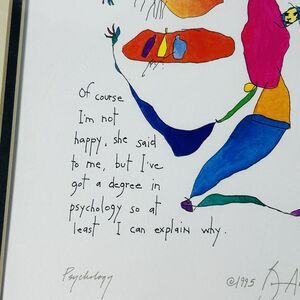 Of course
I'm not
happy, she said
to me, but I've
got a degree in
psychology so at
least I can explain why.
Psychology
©1995